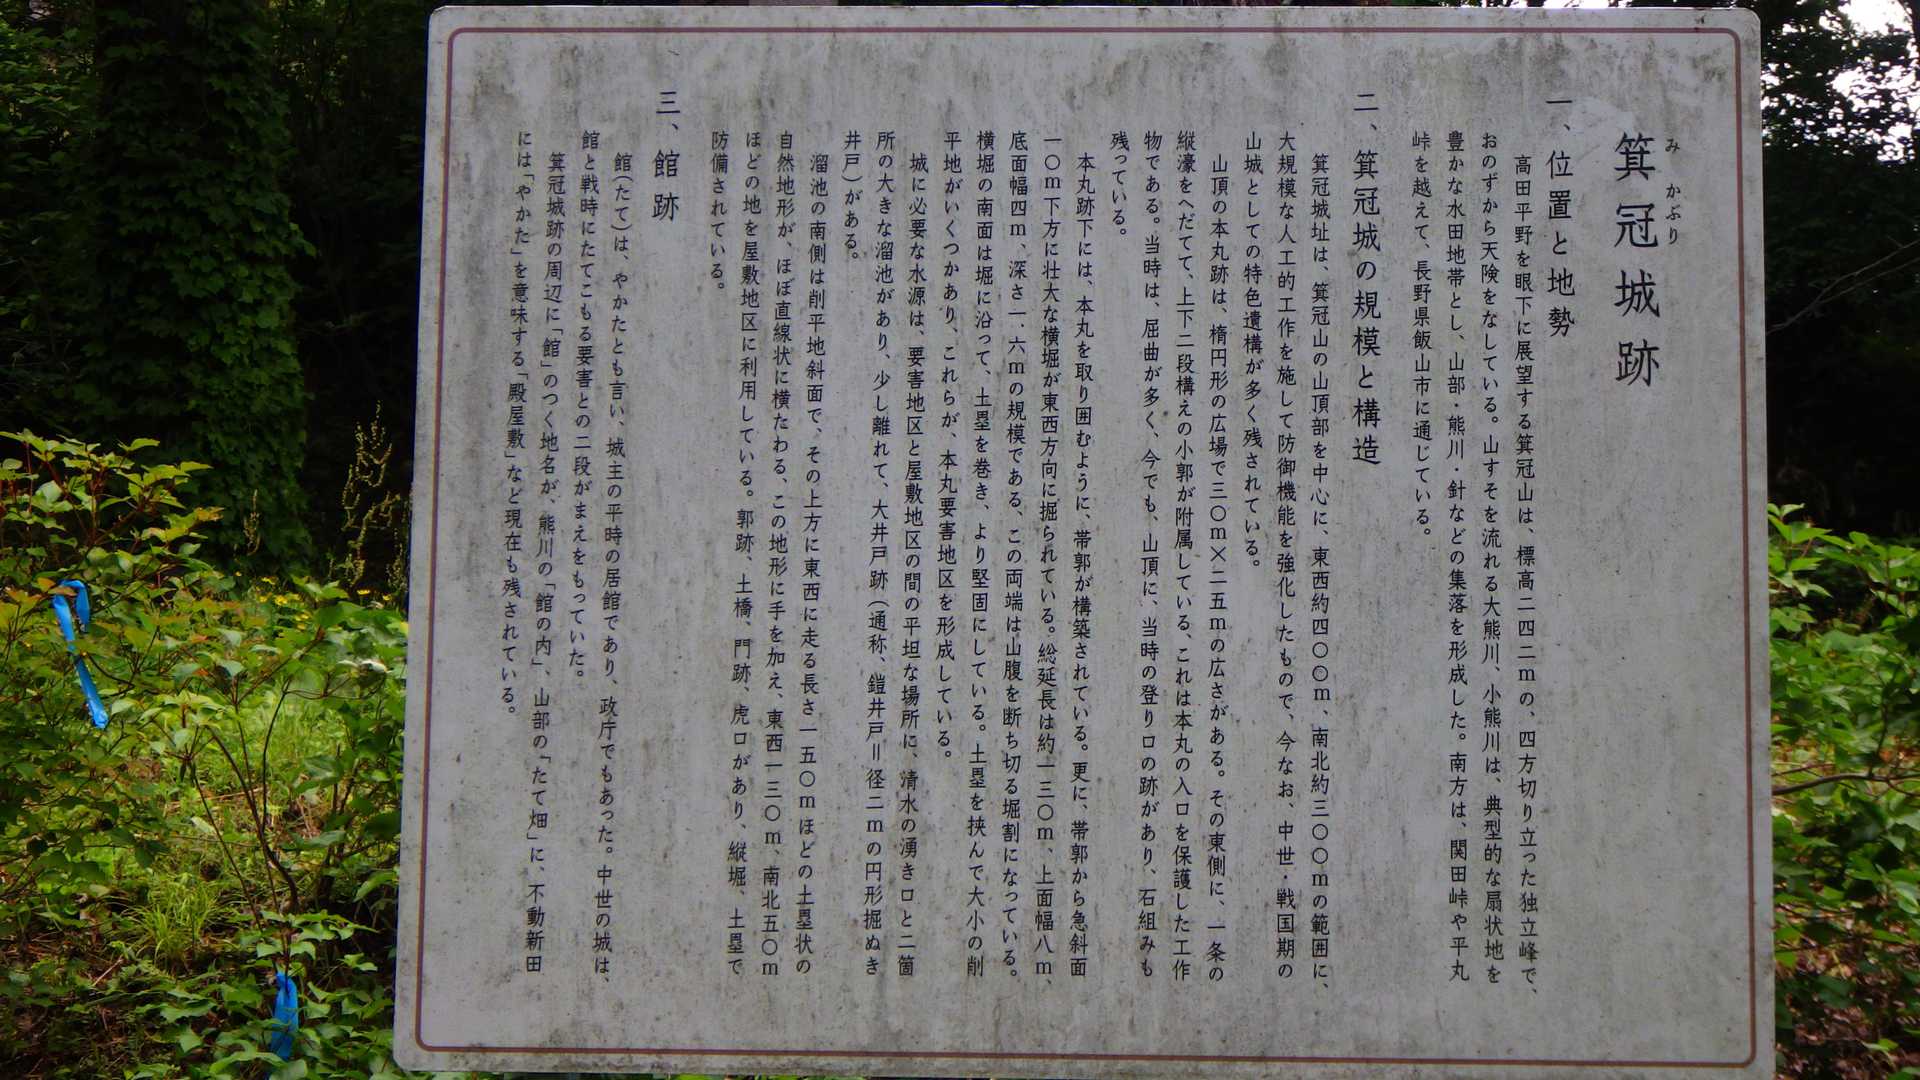 箕冠城跡
みかぶり
一、位置と地勢
高田平野を眼下に展望する箕冠山は、標高二四二mの、四方切り立った独立峰で、
おのずから天険をなしている。山すそを流れる大熊川、小熊川は、典型的な扇状地を
豊かな水田地帯とし、山部・熊川・針などの集落を形成した。南方は、関田峠や平丸
峠を越えて、長野県飯山市に通じている。
二、箕冠城の規模と構造
箕冠城址は、箕冠山の山頂部を中心に、東西約四〇〇m、南北約三〇〇mの範囲に、
大規模な人工的工作を施して防御機能を強化したもので、今なお、中世・戦国期の
山城としての特色遺構が多く残されている。
山頂の本丸跡は、楕円形の広場で三〇m×二五mの広さがある。その東側に、一条の
縦濠をへだてて、上下二段構えの小郭が附属している、これは本丸の入口を保護した工作
物である。当時は、屈曲が多く、今でも、山頂に、当時の登り口の跡があり、石組みも
残っている。
本丸跡下には、本丸を取り囲むように、帯郭が構築されている。更に、帯郭から急斜面
一〇m下方に壮大な横堀が東西方向に掘られている。総延長は約一三〇m、上面幅八m、
底面幅四m、深さ一.六mの規模である、この両端は山腹を断ち切る堀割になっている。
横堀の南面は堀に沿って、土塁を巻き、より堅固にしている。土塁を挟んで大小の削
平地がいくつかあり、これらが、本丸要害地区を形成している。
城に必要な水源は、要害地区と屋敷地区の間の平坦な場所に、清水の湧き口と二箇
所の大きな溜池があり、少し離れて、大井戸跡（通称、鎧井戸＝径二mの円形掘ぬき
井戸）がある。
溜池の南側は削平地斜面で、その上方に東西に走る長さ一五〇mほどの土塁状の
自然地形が、ほぼ直線状に横たわる、この地形に手を加え、東西一三〇m、南北五〇m
ほどの地を屋敷地区に利用している。郭跡、土橋、門跡、虎口があり、縦堀、土塁で
防備されている。
三、館跡
館（たて）は、やかたとも言い、城主の平時の居館であり、政庁でもあった。中世の城は、
館と戦時にたてこもる要害との二段がまえをもっていた。
箕冠城跡の周辺に「館」のつく地名が、熊川の「館の内」、山部の「たて畑」に、不動新田
には「やかた」を意味する「殿屋敷」など現在も残されている。